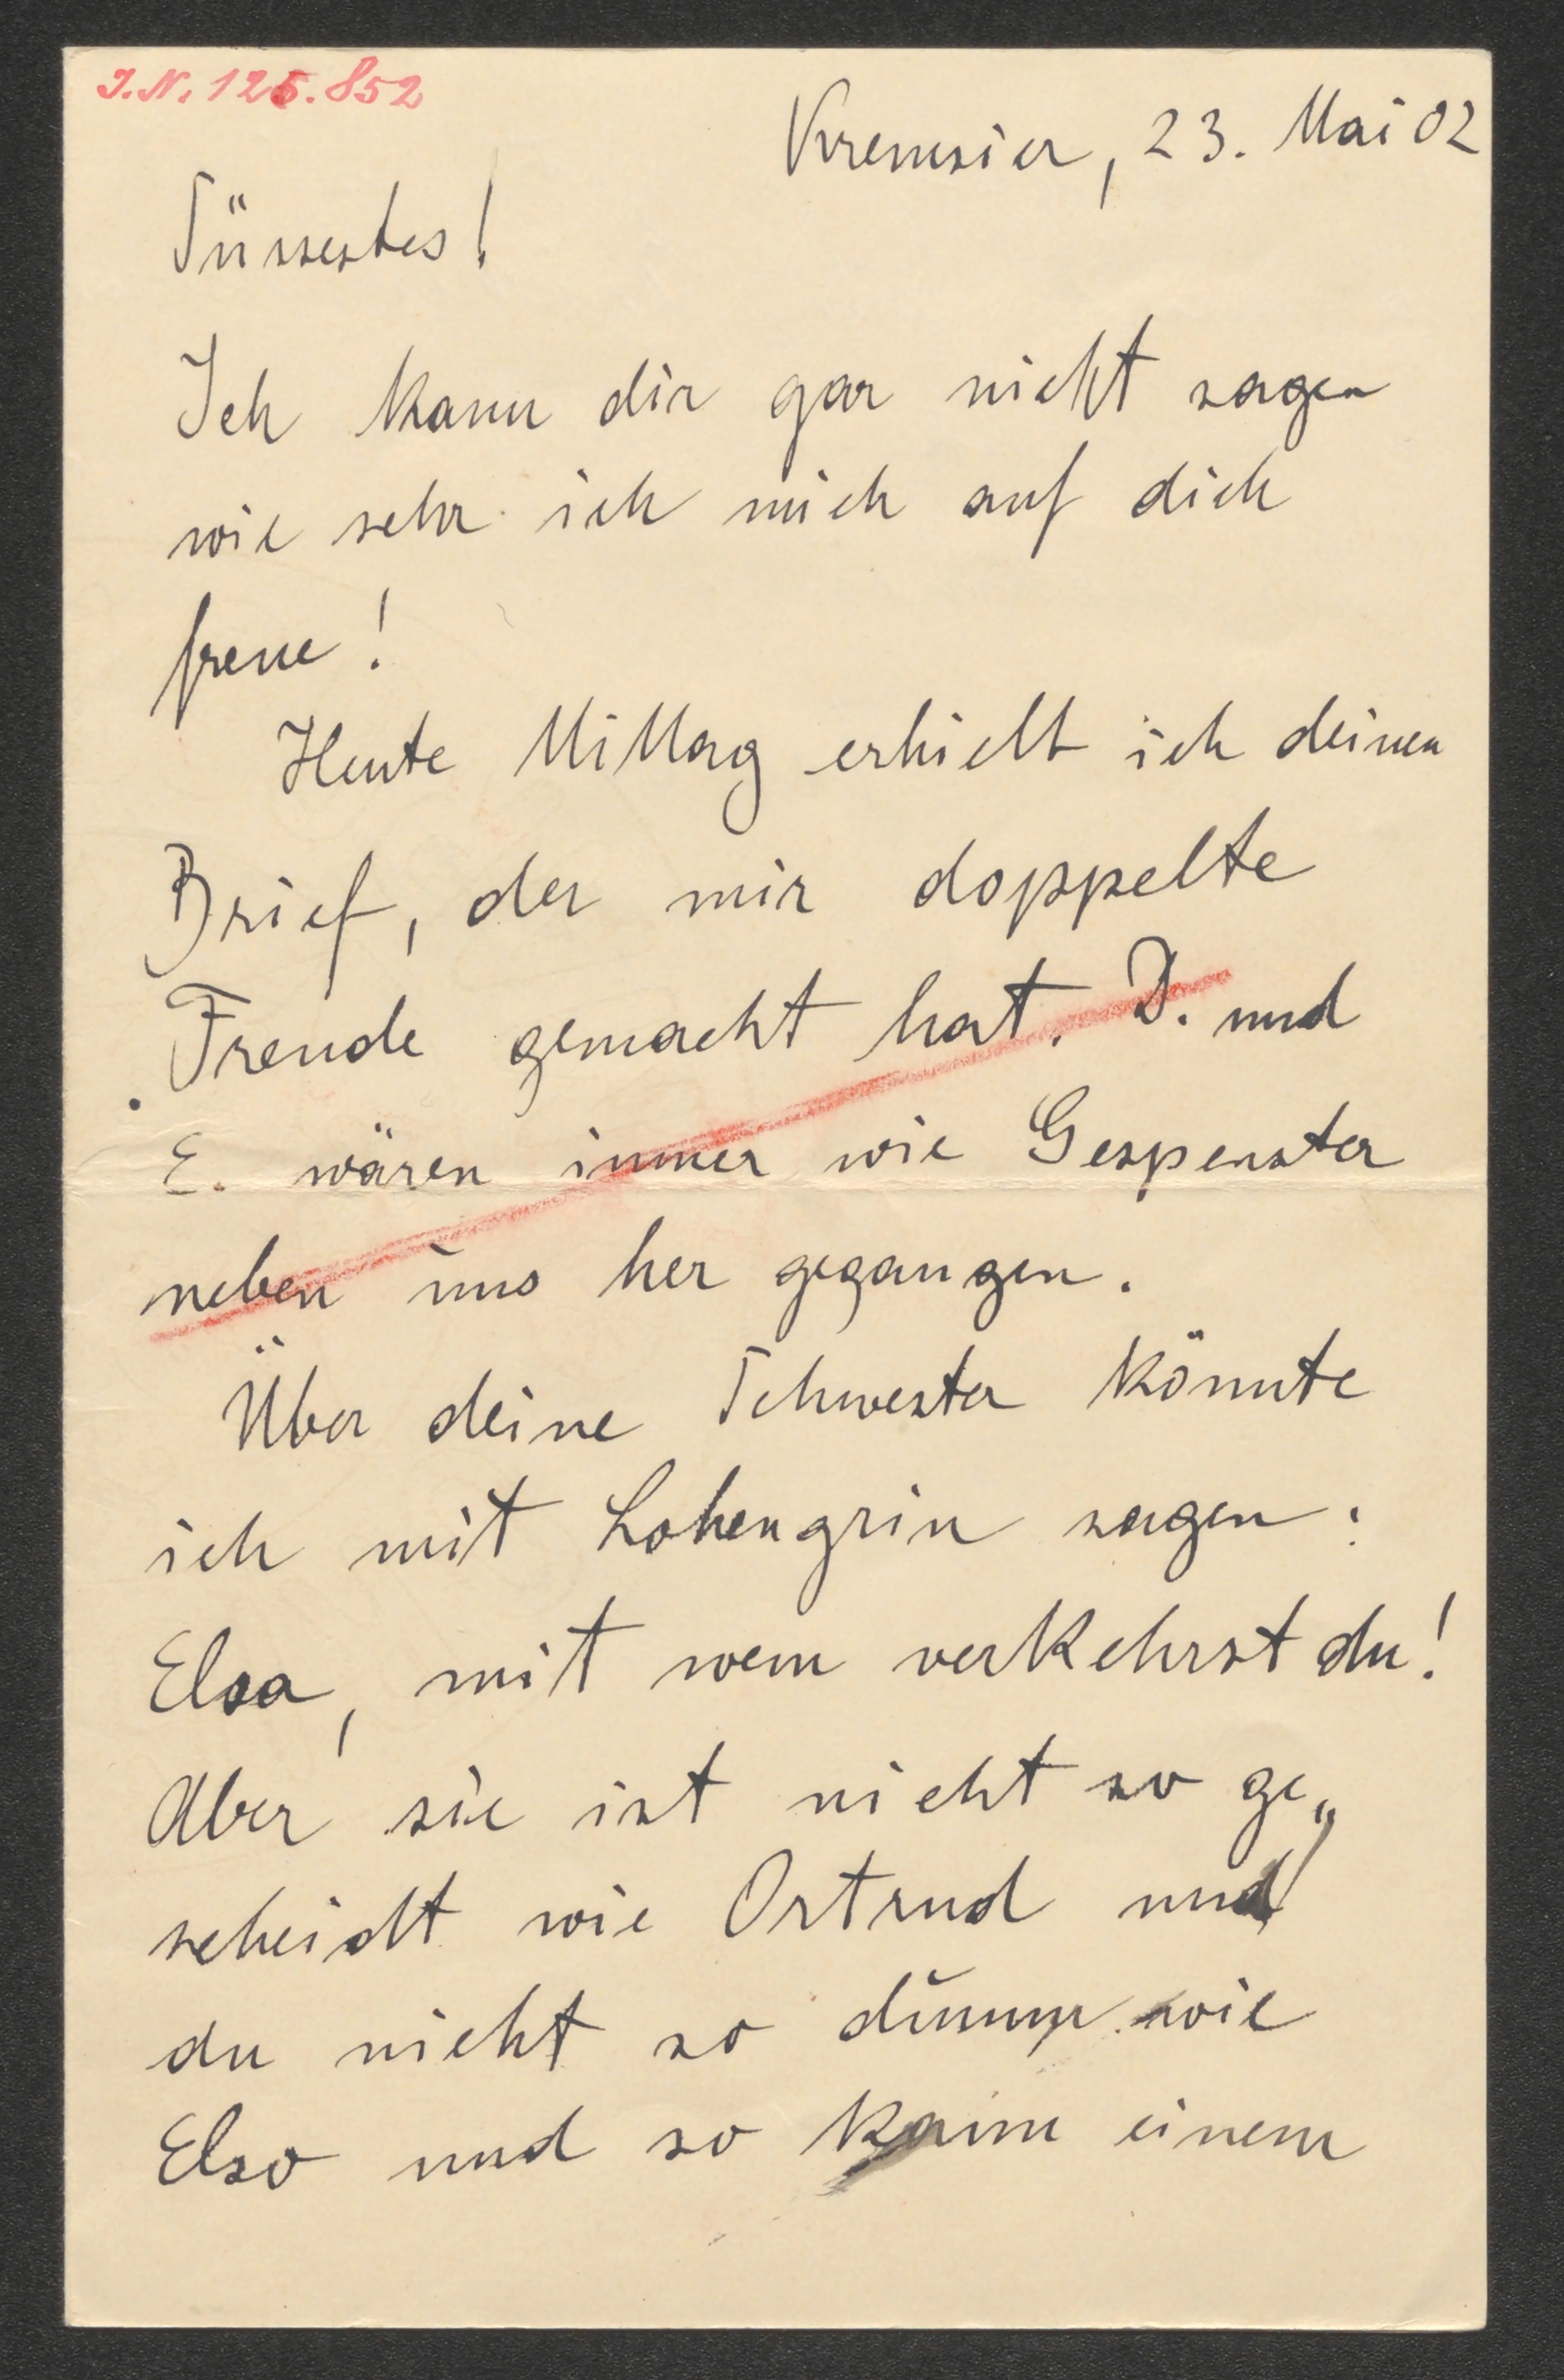 J.N. 125.852
Kremsier, 23. Mai 02
Süssestes!
Ich kann dir gar nicht sagen
wie sehr ich mich auf dich
freue!
Heute Mittag erhielt ich deinen
Brief, der mir doppelte
Freude gemacht hat. D. und
E. wären immer wie Gespenster
neben uns her gegangen.
Über deine Schwester könnte
ich mit Lohengrin sagen:
Elsa, mit wem verkehrst du!
Aber sie ist nicht so ge„
scheidt wie Ortrud und
du nicht so dumm wie
Elsa und so kann einem